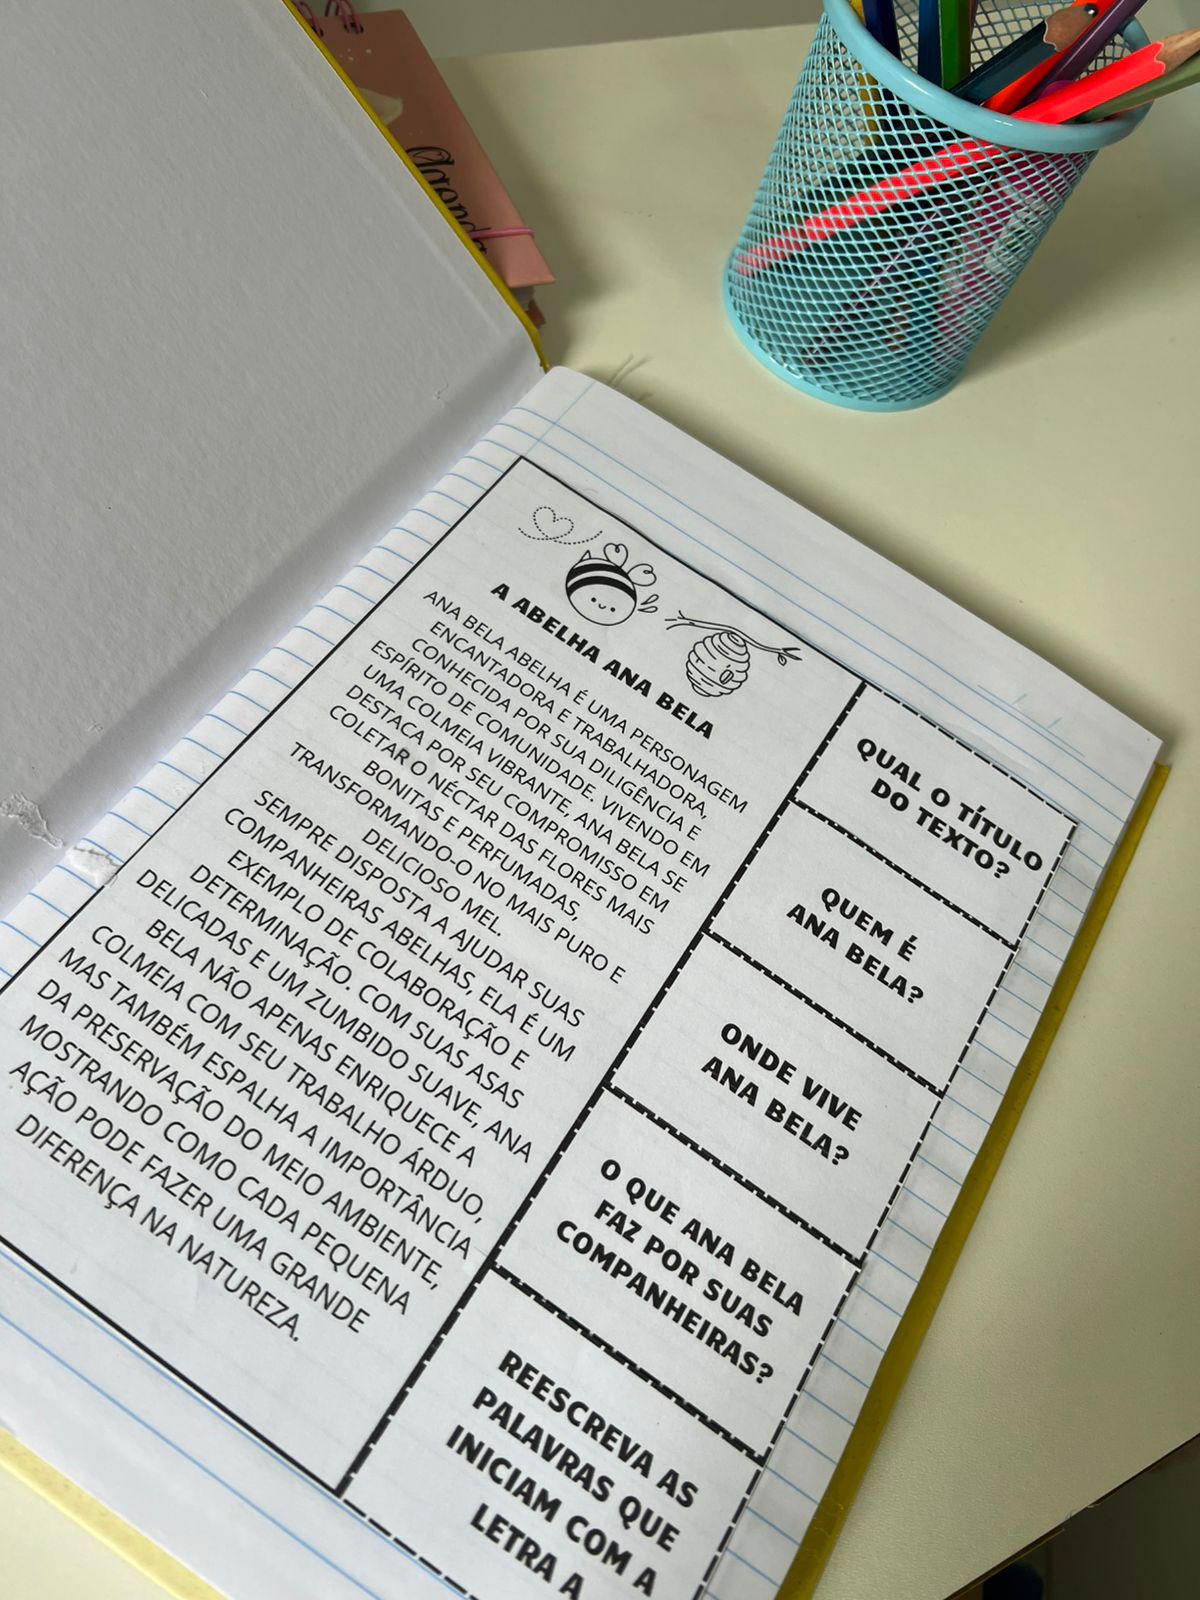 Agenda
A ABELHA ANA BELA
ANA BELA ABELHA É UMA PERSONAGEM
ENCANTADORA E TRABALHADORA,
CONHECIDA POR SUA DILIGÊNCIA E
ESPÍRITO DE COMUNIDADE. VIVENDO EM
UMA COLMEIA VIBRANTE, ANA BELA SE
DESTACA POR SEU COMPROMISSO EM
COLETAR O NÉCTAR DAS FLORES MAIS
BONITAS E PERFUMADAS,
TRANSFORMANDO-O NO MAIS PURO E
DELICIOSO MEL.
SEMPRE DISPOSTA A AJUDAR SUAS
COMPANHEIRAS ABELHAS, ELA É UM
EXEMPLO DE COLABORAÇÃO E
DETERMINAÇÃO. COM SUAS ASAS
DELICADAS E UM ZUMBIDO SUAVE, ANA
BELA NÃO APENAS ENRIQUECE A
COLMEIA COM SEU TRABALHO ÁRDUO,
MAS TAMBÉM ESPALHA A IMPORTÂNCIA
DA PRESERVAÇÃO DO MEIO AMBIENTE,
MOSTRANDO COMO CADA PEQUENA
AÇÃO PODE FAZER UMA GRANDE
DIFERENÇA NA NATUREZA.
QUAL O TÍTULO
DO TEXTO?
QUEM É
ANA BELA?
ONDE VIVE
ANA BELA?
O QUE ANA BELA
FAZ POR SUAS
COMPANHEIRAS?
REESCREVA AS
PALAVRAS QUE
INICIAM COM A
LETRA A